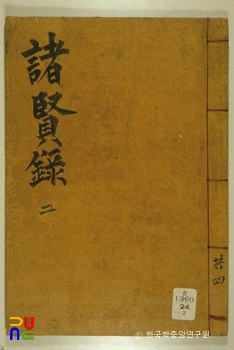 諸賢錄
二
共四
B
1360
24
2
UNE
© 한국학중앙연구원